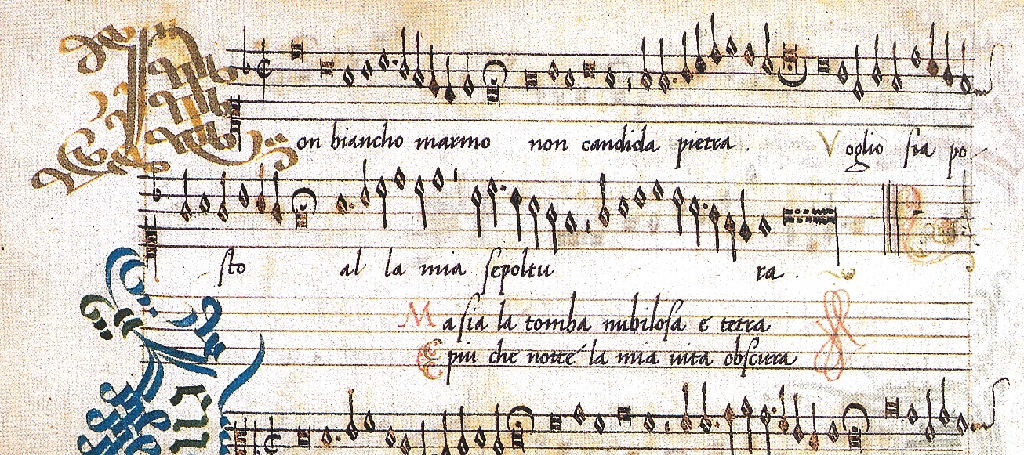 on biancho marmo non candida pietra . Voglio sia po
sto al la mia sepoltu ra .
Ma sia la tomba nubilosa e tetra
E piu che notte la mia vita obscura